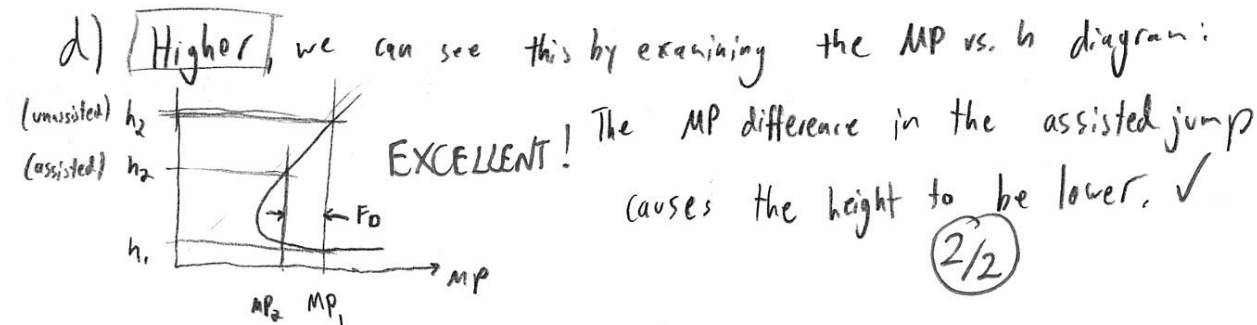 d) Higher, we can see this by examining the MP vs. h diagram:
(unassisted) h₂
(assisted) h₂
h₁
F_D
MP
MP₂ MP₁
EXCELLENT!
The MP difference in the assisted jump
causes the height to be lower. ✓
2/2